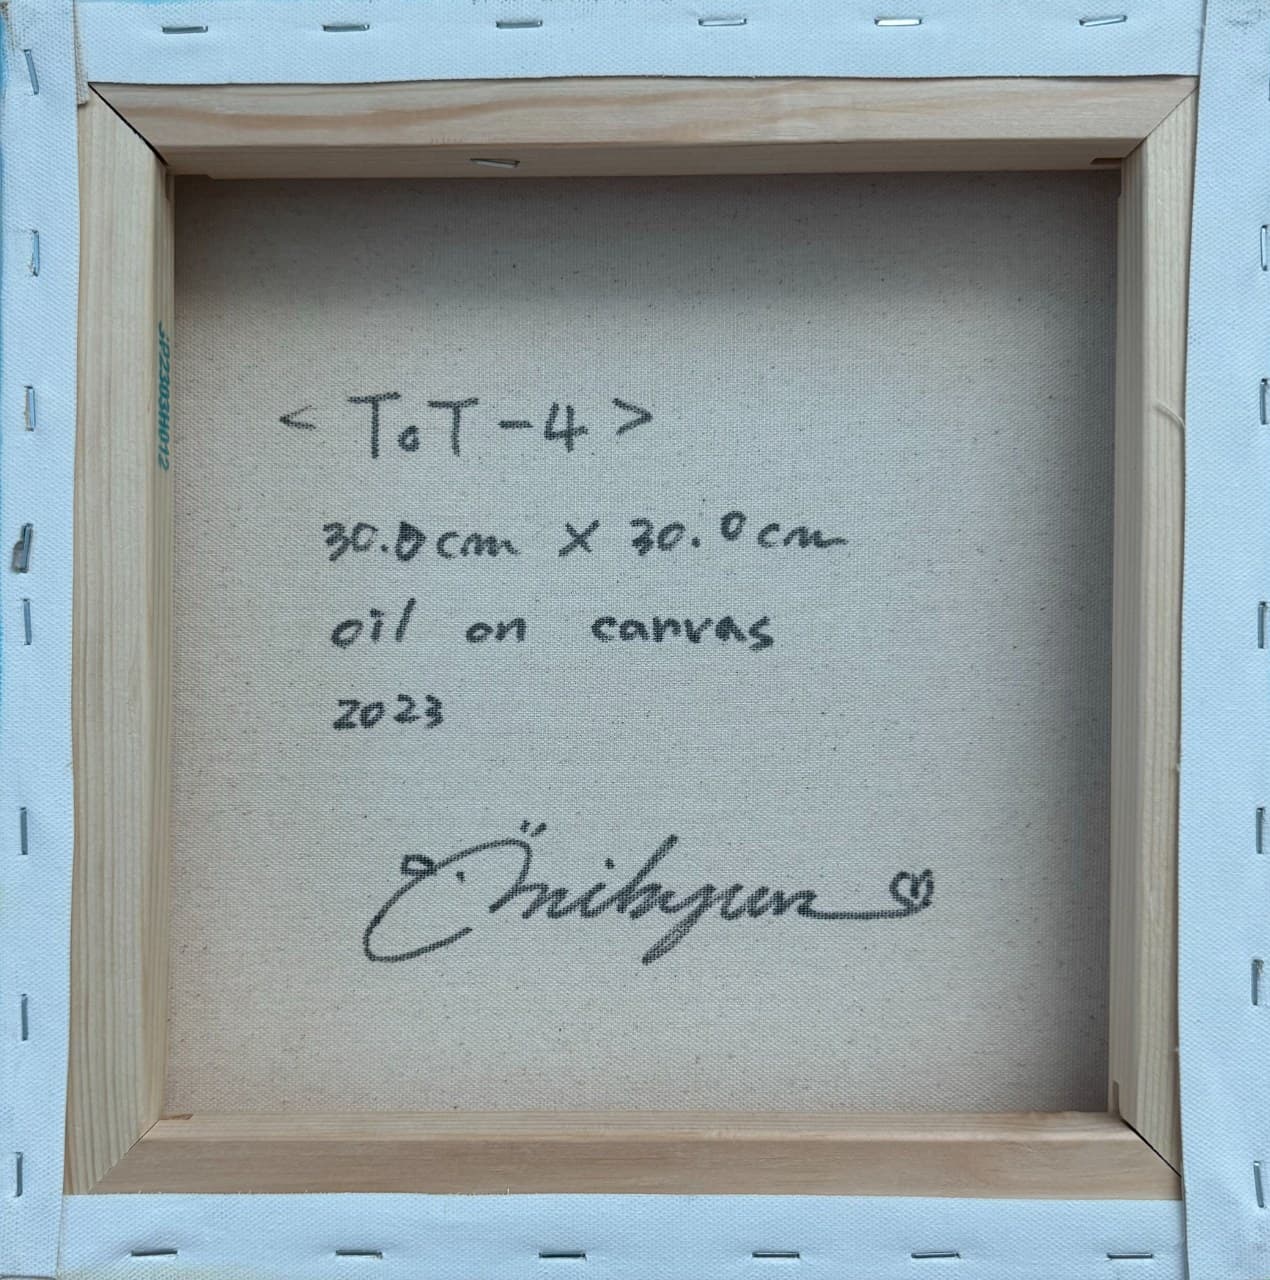 < ToT-4 >
30.0cm X 30.0cm
oil on canvas
2023
JP2303H012